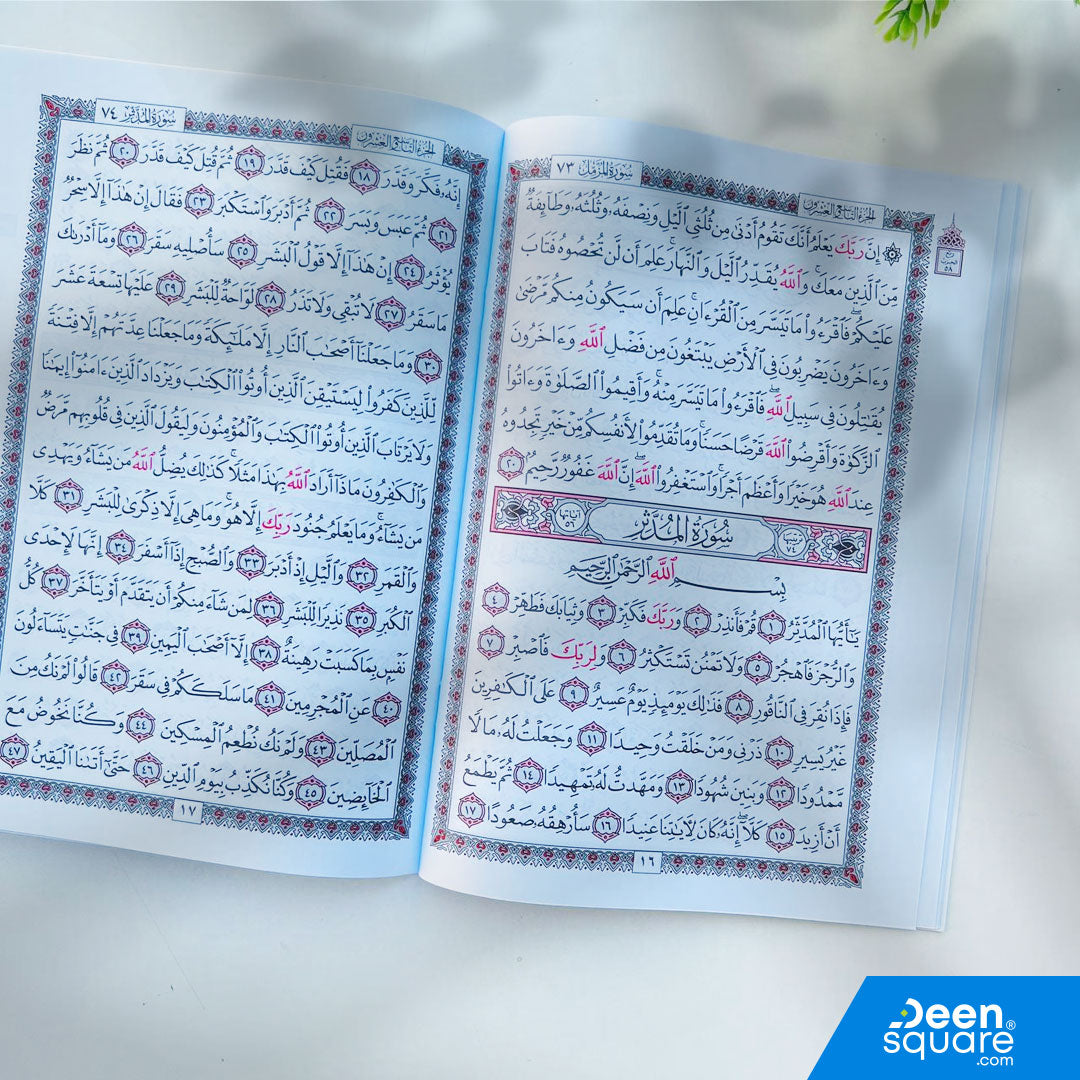 سُورَةُ المُزَّمِّل ٧٣
الجزء التاسع والعشرون
۞ إِنَّ رَبَّكَ يَعْلَمُ أَنَّكَ تَقُومُ أَدْنَىٰ مِن ثُلُثَيِ ٱلَّيْلِ وَنِصْفَهُۥ وَثُلُثَهُۥ وَطَآئِفَةٌ
مِّنَ ٱلَّذِينَ مَعَكَ ۚ وَٱللَّهُ يُقَدِّرُ ٱلَّيْلَ وَٱلنَّهَارَ ۚ عَلِمَ أَن لَّن تُحْصُوهُ فَتَابَ
عَلَيْكُمْ ۖ فَٱقْرَءُوا۟ مَا تَيَسَّرَ مِنَ ٱلْقُرْءَانِ ۚ عَلِمَ أَن سَيَكُونُ مِنكُم مَّرْضَىٰ
وَءَاخَرُونَ يَضْرِبُونَ فِى ٱلْأَرْضِ يَبْتَغُونَ مِن فَضْلِ ٱللَّهِ وَءَاخَرُونَ
يُقَٰتِلُونَ فِى سَبِيلِ ٱللَّهِ ۖ فَٱقْرَءُوا۟ مَا تَيَسَّرَ مِنْهُ ۚ وَأَقِيمُوا۟ ٱلصَّلَوٰةَ وَءَاتُوا۟
ٱلزَّكَوٰةَ وَأَقْرِضُوا۟ ٱللَّهَ قَرْضًا حَسَنًا ۚ وَمَا تُقَدِّمُوا۟ لِأَنفُسِكُم مِّنْ خَيْرٍ تَجِدُوهُ
عِندَ ٱللَّهِ هُوَ خَيْرًا وَأَعْظَمَ أَجْرًا ۚ وَٱسْتَغْفِرُوا۟ ٱللَّهَ ۖ إِنَّ ٱللَّهَ غَفُورٌ رَّحِيمٌۢ ٢٠
ترتيبها ٧٤ سُورَةُ المُدَّثِّر آياتها ٥٦
بِسْمِ ٱللَّهِ ٱلرَّحْمَٰنِ ٱلرَّحِيمِ
يَٰٓأَيُّهَا ٱلْمُدَّثِّرُ ١ قُمْ فَأَنذِرْ ٢ وَرَبَّكَ فَكَبِّرْ ٣ وَثِيَابَكَ فَطَهِّرْ ٤
وَٱلرُّجْزَ فَٱهْجُرْ ٥ وَلَا تَمْنُن تَسْتَكْثِرُ ٦ وَلِرَبِّكَ فَٱصْبِرْ ٧
فَإِذَا نُقِرَ فِى ٱلنَّاقُورِ ٨ فَذَٰلِكَ يَوْمَئِذٍ يَوْمٌ عَسِيرٌ ٩ عَلَى ٱلْكَٰفِرِينَ
غَيْرُ يَسِيرٍ ١٠ ذَرْنِى وَمَنْ خَلَقْتُ وَحِيدًا ١١ وَجَعَلْتُ لَهُۥ مَالًا
مَّمْدُودًا ١٢ وَبَنِينَ شُهُودًا ١٣ وَمَهَّدتُّ لَهُۥ تَمْهِيدًا ١٤ ثُمَّ يَطْمَعُ
أَنْ أَزِيدَ ١٥ كَلَّآ ۖ إِنَّهُۥ كَانَ لِءَايَٰتِنَا عَنِيدًا ١٦ سَأُرْهِقُهُۥ صَعُودًا ١٧
١٦
ربع الحزب ٥٨
سُورَةُ المُدَّثِّر ٧٤
الجزء التاسع والعشرون
إِنَّهُۥ فَكَّرَ وَقَدَّرَ ١٨ فَقُتِلَ كَيْفَ قَدَّرَ ١٩ ثُمَّ قُتِلَ كَيْفَ قَدَّرَ ٢٠ ثُمَّ نَظَرَ
٢١ ثُمَّ عَبَسَ وَبَسَرَ ٢٢ ثُمَّ أَدْبَرَ وَٱسْتَكْبَرَ ٢٣ فَقَالَ إِنْ هَٰذَآ إِلَّا سِحْرٌ
يُؤْثَرُ ٢٤ إِنْ هَٰذَآ إِلَّا قَوْلُ ٱلْبَشَرِ ٢٥ سَأُصْلِيهِ سَقَرَ ٢٦ وَمَآ أَدْرَىٰكَ
مَا سَقَرُ ٢٧ لَا تُبْقِى وَلَا تَذَرُ ٢٨ لَوَّاحَةٌ لِّلْبَشَرِ ٢٩ عَلَيْهَا تِسْعَةَ عَشَرَ
٣٠ وَمَا جَعَلْنَآ أَصْحَٰبَ ٱلنَّارِ إِلَّا مَلَٰٓئِكَةً وَمَا جَعَلْنَا عِدَّتَهُمْ إِلَّا فِتْنَةً
لِّلَّذِينَ كَفَرُوا۟ لِيَسْتَيْقِنَ ٱلَّذِينَ أُوتُوا۟ ٱلْكِتَٰبَ وَيَزْدَادَ ٱلَّذِينَ ءَامَنُوٓا۟ إِيمَٰنًا
وَلَا يَرْتَابَ ٱلَّذِينَ أُوتُوا۟ ٱلْكِتَٰبَ وَٱلْمُؤْمِنُونَ وَلِيَقُولَ ٱلَّذِينَ فِى قُلُوبِهِم مَّرَضٌ
وَٱلْكَٰفِرُونَ مَاذَآ أَرَادَ ٱللَّهُ بِهَٰذَا مَثَلًا ۚ كَذَٰلِكَ يُضِلُّ ٱللَّهُ مَن يَشَآءُ وَيَهْدِى
مَن يَشَآءُ ۚ وَمَا يَعْلَمُ جُنُودَ رَبِّكَ إِلَّا هُوَ ۚ وَمَا هِىَ إِلَّا ذِكْرَىٰ لِلْبَشَرِ ٣١ كَلَّا
وَٱلْقَمَرِ ٣٢ وَٱلَّيْلِ إِذْ أَدْبَرَ ٣٣ وَٱلصُّبْحِ إِذَآ أَسْفَرَ ٣٤ إِنَّهَا لَإِحْدَى
ٱلْكُبَرِ ٣٥ نَذِيرًا لِّلْبَشَرِ ٣٦ لِمَن شَآءَ مِنكُمْ أَن يَتَقَدَّمَ أَوْ يَتَأَخَّرَ ٣٧ كُلُّ
نَفْسٍۭ بِمَا كَسَبَتْ رَهِينَةٌ ٣٨ إِلَّآ أَصْحَٰبَ ٱلْيَمِينِ ٣٩ فِى جَنَّٰتٍ يَتَسَآءَلُونَ
٤٠ عَنِ ٱلْمُجْرِمِينَ ٤١ مَا سَلَكَكُمْ فِى سَقَرَ ٤٢ قَالُوا۟ لَمْ نَكُ مِنَ
ٱلْمُصَلِّينَ ٤٣ وَلَمْ نَكُ نُطْعِمُ ٱلْمِسْكِينَ ٤٤ وَكُنَّا نَخُوضُ مَعَ
ٱلْخَآئِضِينَ ٤٥ وَكُنَّا نُكَذِّبُ بِيَوْمِ ٱلدِّينِ ٤٦ حَتَّىٰٓ أَتَىٰنَا ٱلْيَقِينُ ٤٧
١٧
Deen
square®
.com